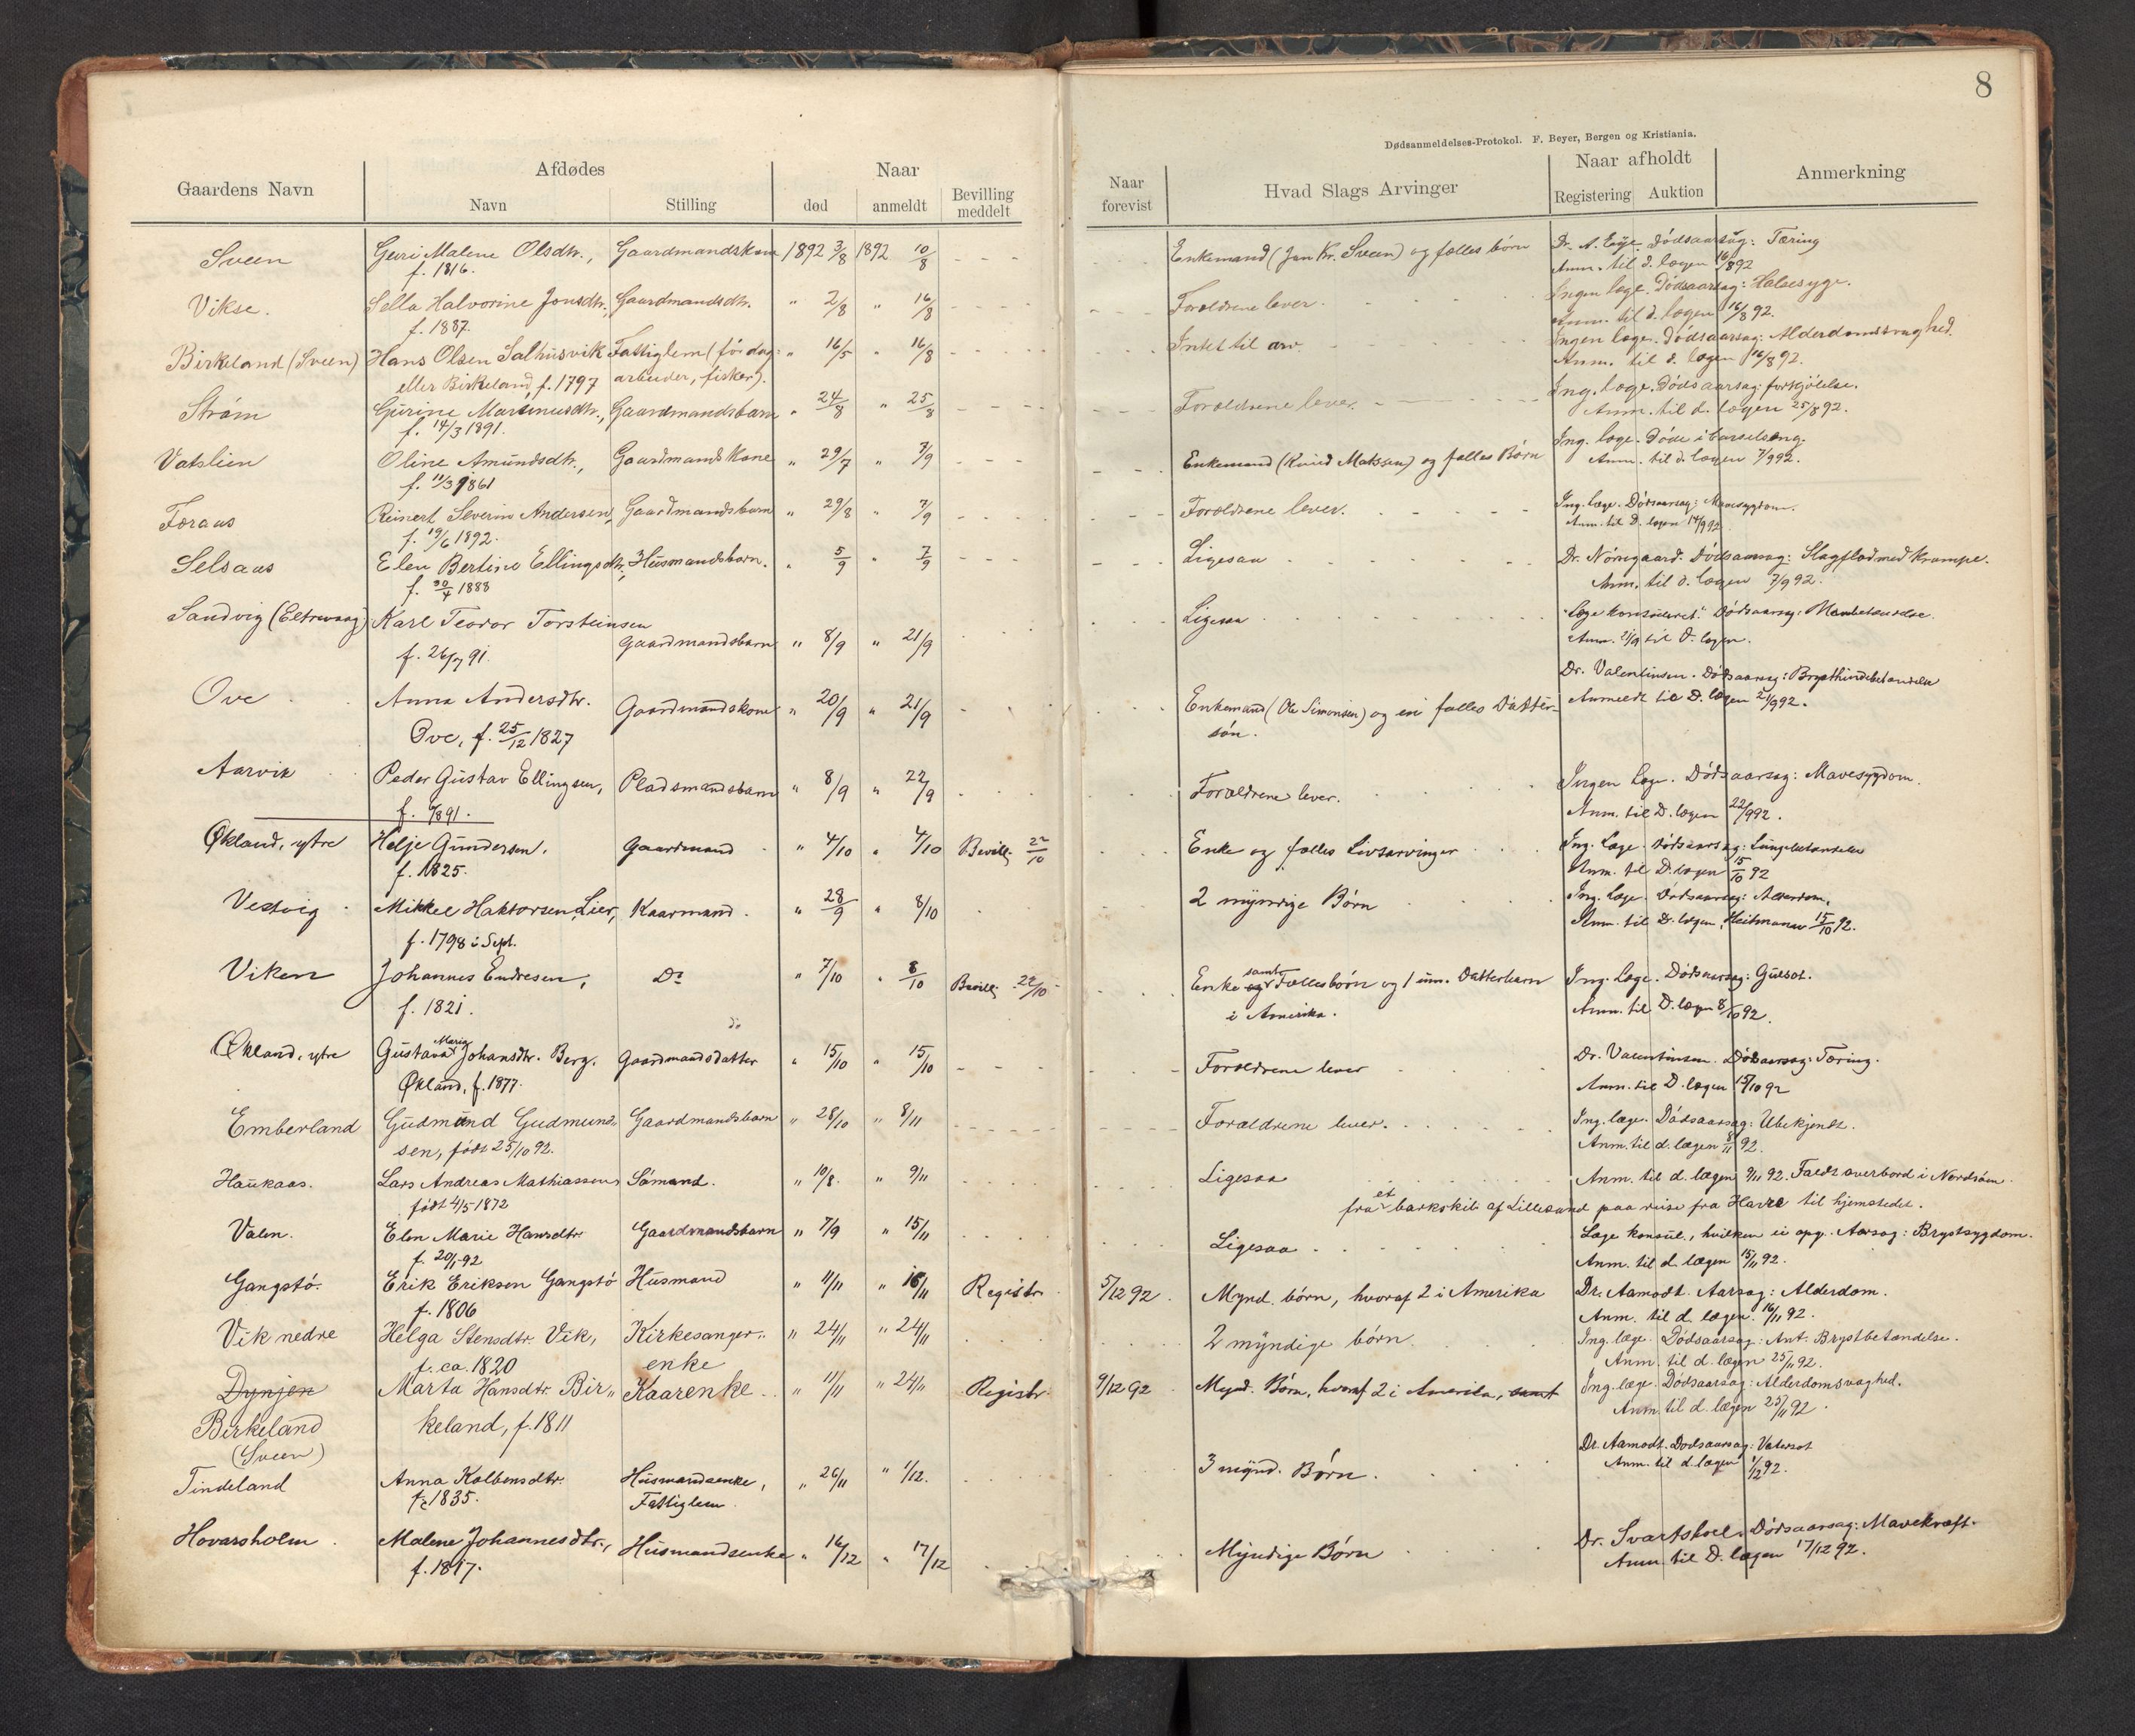 8
Dødsanmeldelses-Protokol. F. Beyer, Bergen og Kristiania.
Gaardens Navn
Afdødes
Navn
Stilling
Naar
død
anmeldt
Bevilling meddelt
Naar forevist
Hvad Slags Arvinger
Naar afholdt
Registering
Auktion
Anmerkning
Sveen
Guri Malene Olsdtr., Gaardmandskone 1892 3/8 1892 10/8
f. 1816.
Enkemand (Jan Kr. Sveen) og fælles børn
Dødsaarsag: Tæring
Anm. til d. lægen 16/8 92
Vikse.
Sella Halvorine Jonsdtr., Gaardmandsdtr. " 2/8 " 16/8
f. 1887.
Forældrene lever.
Ingen læge. Dødsaarsag: Halsesyge.
Anm. til d. lægen 16/8 92.
Birkeland (Sveen)
Hans Olsen Salhusvik Fattiglem (før dag- " 16/5 " 16/8
eller Birkeland, f. 1797 arbeider, fisker).
Intet til arv.
Ingen læge. Dødsaarsag: Alderdomssvaghed.
Anm. til d. lægen 16/8 92.
Strøm
Gurine Martinusdtr., Gaardmandsbarn " 24/8 " 25/8
f. 14/3 1891.
Forældrene lever.
Ing. læge. Dødsaarsag: forkjølelse.
Anm. til d. lægen 25/8 92.
Vatslien
Oline Amundsdtr., Gaardmandskone " 29/7 " 7/9
f. 11/3 1861
Enkemand (Knud Matssen) og fælles Børn
Ing. læge. Døde i barselseng.
Anm. til d. lægen 7/9 92.
Foraas
Reinert Severin Andersen, Gaardmandsbarn " 29/8 " 7/9
f. 19/6 1892.
Forældrene lever.
Ing. læge. Dødsaarsag: Mavesygdom.
Anm. til D. lægen 14/9 92
Selsaas
Elen Bertine Ellingsdtr., Husmandsbarn. " 5/9 " 7/9
f. 30/4 1888
Ligesaa
Dr. Nørregaard. Dødsaarsag: Slagflod med Krampe.
Anm. til d. lægen 7/9 92.
Sandvig (Eltravaag)
Karl Teodor Torsteinsen
Gaardmandsbarn " 8/9 " 21/9
f. 26/7 91.
Ligesaa
"Læge konsuleret." Dødsaarsag:
Anm. 21/9 til D. lægen.
Ove
Anna Andersdtr. Gaardmandskone " 20/9 " 21/9
Ove, f. 25/12 1827
Enkemand (Ole Simonsen) og en fælles Datter-
søn.
Dr. Valentinsen. Dødsaarsag: Brysthindebetændelse
Anmeldt til D. lægen 21/9 92.
Aarvik
Peder Gustav Ellingsen, Pladsmandsbarn " 8/9 " 22/9
Forældrene lever.
Ingen Læge. Dødsaarsag: Mavesygdom.
Anm. til D. lægen 22/9 92.
Økland, ytre
Helje Gundersen. Gaardmand " 4/10 " 4/10 Bevill. 22/10
f. 1825.
Enke og fælles Livsarvinger
Ing. Læge. Dødsaarsag: Lungebetændelse
Anm. til D. lægen 15/10 92
Vestvig
Mikkel Haktorsen, Lier, Kaarmand. " 28/9 " 8/10
f. 1798 i Sept.
2 myndige Børn
Ing. Læge. Dødsaarsag: Alderdom.
Anm. til D. lægen, Heitmann 15/10 92.
Viken
Johannes Endresen, Do " 7/10 " 8/10 Bevill. 22/10
f. 1821.
Enke og samt Fællesbørn og 1 um. Datterbarn
i Amerika.
Ing. Læge. Dødsaarsag: Gulsot.
Anm. til D. lægen 8/10 92.
Økland, ytre
Gustava Marie Johansdtr. Berg, Gaardmandsdatter " 15/10 " 15/10
Økland, f. 1877.
Forældrene lever
Dr. Valentinsen. Dødsaarsag: Tæring.
Anm. til D. lægen 15/10 92
Emberland
Gudmund Gudmund- Gaardmandsbarn " 28/10 " 8/11
sen, født 25/10 92.
Forældrene lever.
Ing. læge. Dødsaarsag: Ubekjendt.
Anm. til d. lægen 8/11 92.
Haukaas.
Lars Andreas Mathiassen, Sømand. " 10/8. " 9/11
født 4/5 1872
Ligesaa
Anm. til d. lægen 9/11 92. Faldt overbord i Nordsøen
fra et barkskib af Lillesand paa reise fra Havre til hjemstedet.
Valen.
Elen Marie Hansdtr. Gaardmandsbarn " 7/9 " 15/11
f. 20/1 92
Ligesaa
Læge konsul., hvilken ei opg. Aarsag: Brystsygdom.
Anm. til d. lægen 15/11 92.
Gangstø.
Erik Eriksen Gangstø Husmand " 11/11 " 16/11 Registr.
f. 1806
5/12 92. Mynd. børn, hvoraf 2 i Amerika
Dr. Aamodt. Aarsag: Alderdom.
Anm. til d. lægen 16/11 92.
Vik nedre
Helga Stensdtr. Vik, Kirkesanger- " 24/11 " 24/11
f. ca. 1820 enke
2 myndige børn.
Ing. læge. Dødsaarsag: Ant. Brystbetændelse.
Anm. til d. lægen 25/11 92.
Dynjen
Birkeland
(Sveen)
Marta Hansdtr. Bir- Kaarenke " 11/11 " 24/11 Registr.
keland, f. 1811
9/12 92 Mynd. Børn, hvoraf 2 i Amerika, samt
Ing. læge. Dødsaarsag: Alderdomsvaghed.
Anm. til d. lægen 25/11 92.
Tindeland
Anna Kolbensdtr. Husmandsenke, " 26/11 " 1/12.
f. 1835. Fattiglem.
3 mynd. Børn.
Dr. Aamodt. Dødsaarsag: Vatersot
Anm. til d. lægen 1/12 92.
Hovarsholm
Malene Johannesdtr., Husmandsenke " 16/12 " 17/12
f. 1817.
Myndige Børn
Dødsaarsag: Mavekræft.
Anm. til D. lægen 17/12 92.